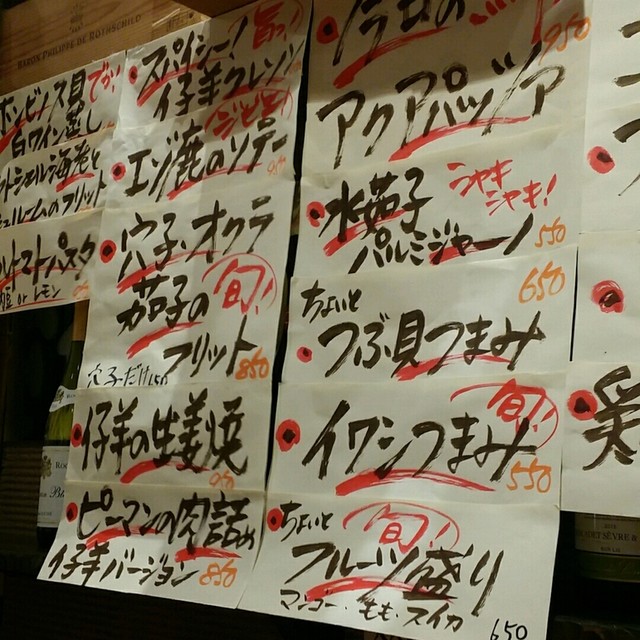 BARON PHILIPPE DE ROTHSCHILD
ホンビノス貝
でかい
白ワイン蒸し
フリット
トマトパスタ
or レモン
スパイシー!
旨っ
仔羊クレソン
ジビエ
エゾ鹿のソテー
穴子、オクラ
茄子の
旬!
フリット
850
穴子だけ 650
仔羊の生姜焼
ピーマンの肉詰め
仔羊バージョン
850
950
アクアパッツァ
水茄子
シャキ
シャキ!
パルミジャーノ
550
650
ちょいと
つぶ貝つまみ
旬!
イワシつまみ
550
ちょいと
旬!
フルーツ盛り
マンゴー、もも、スイカ
650